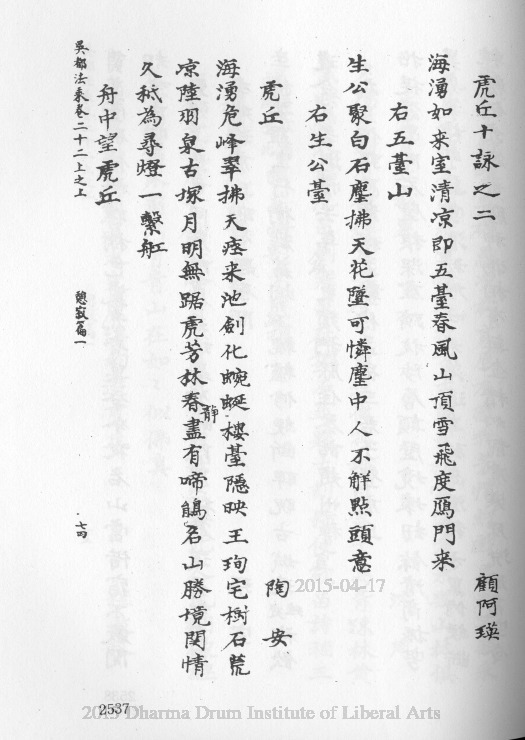 虎丘十詠之二
顧阿瑛
海湧如来室清凉即五臺春風山頂雪飛度鴈門来
右五臺山
生公聚白石麈拂天花墜可憐塵中人不解點頭意
右生公臺
虎丘
陶安
海湧危峰翠拂天痊来池劍化蜿蜒樓臺隱映王珣宅樹石荒
凉陸羽泉古塚月明無踞虎芳林春盡有啼鵑名山勝境関情
靜
久秪為尋燈一繫舡
舟中望虎丘
吳都法乘卷二十二上之上
憩寂篇一
七四
2537
2015-04-17
2015 Dharma Drum Institute of Liberal Arts